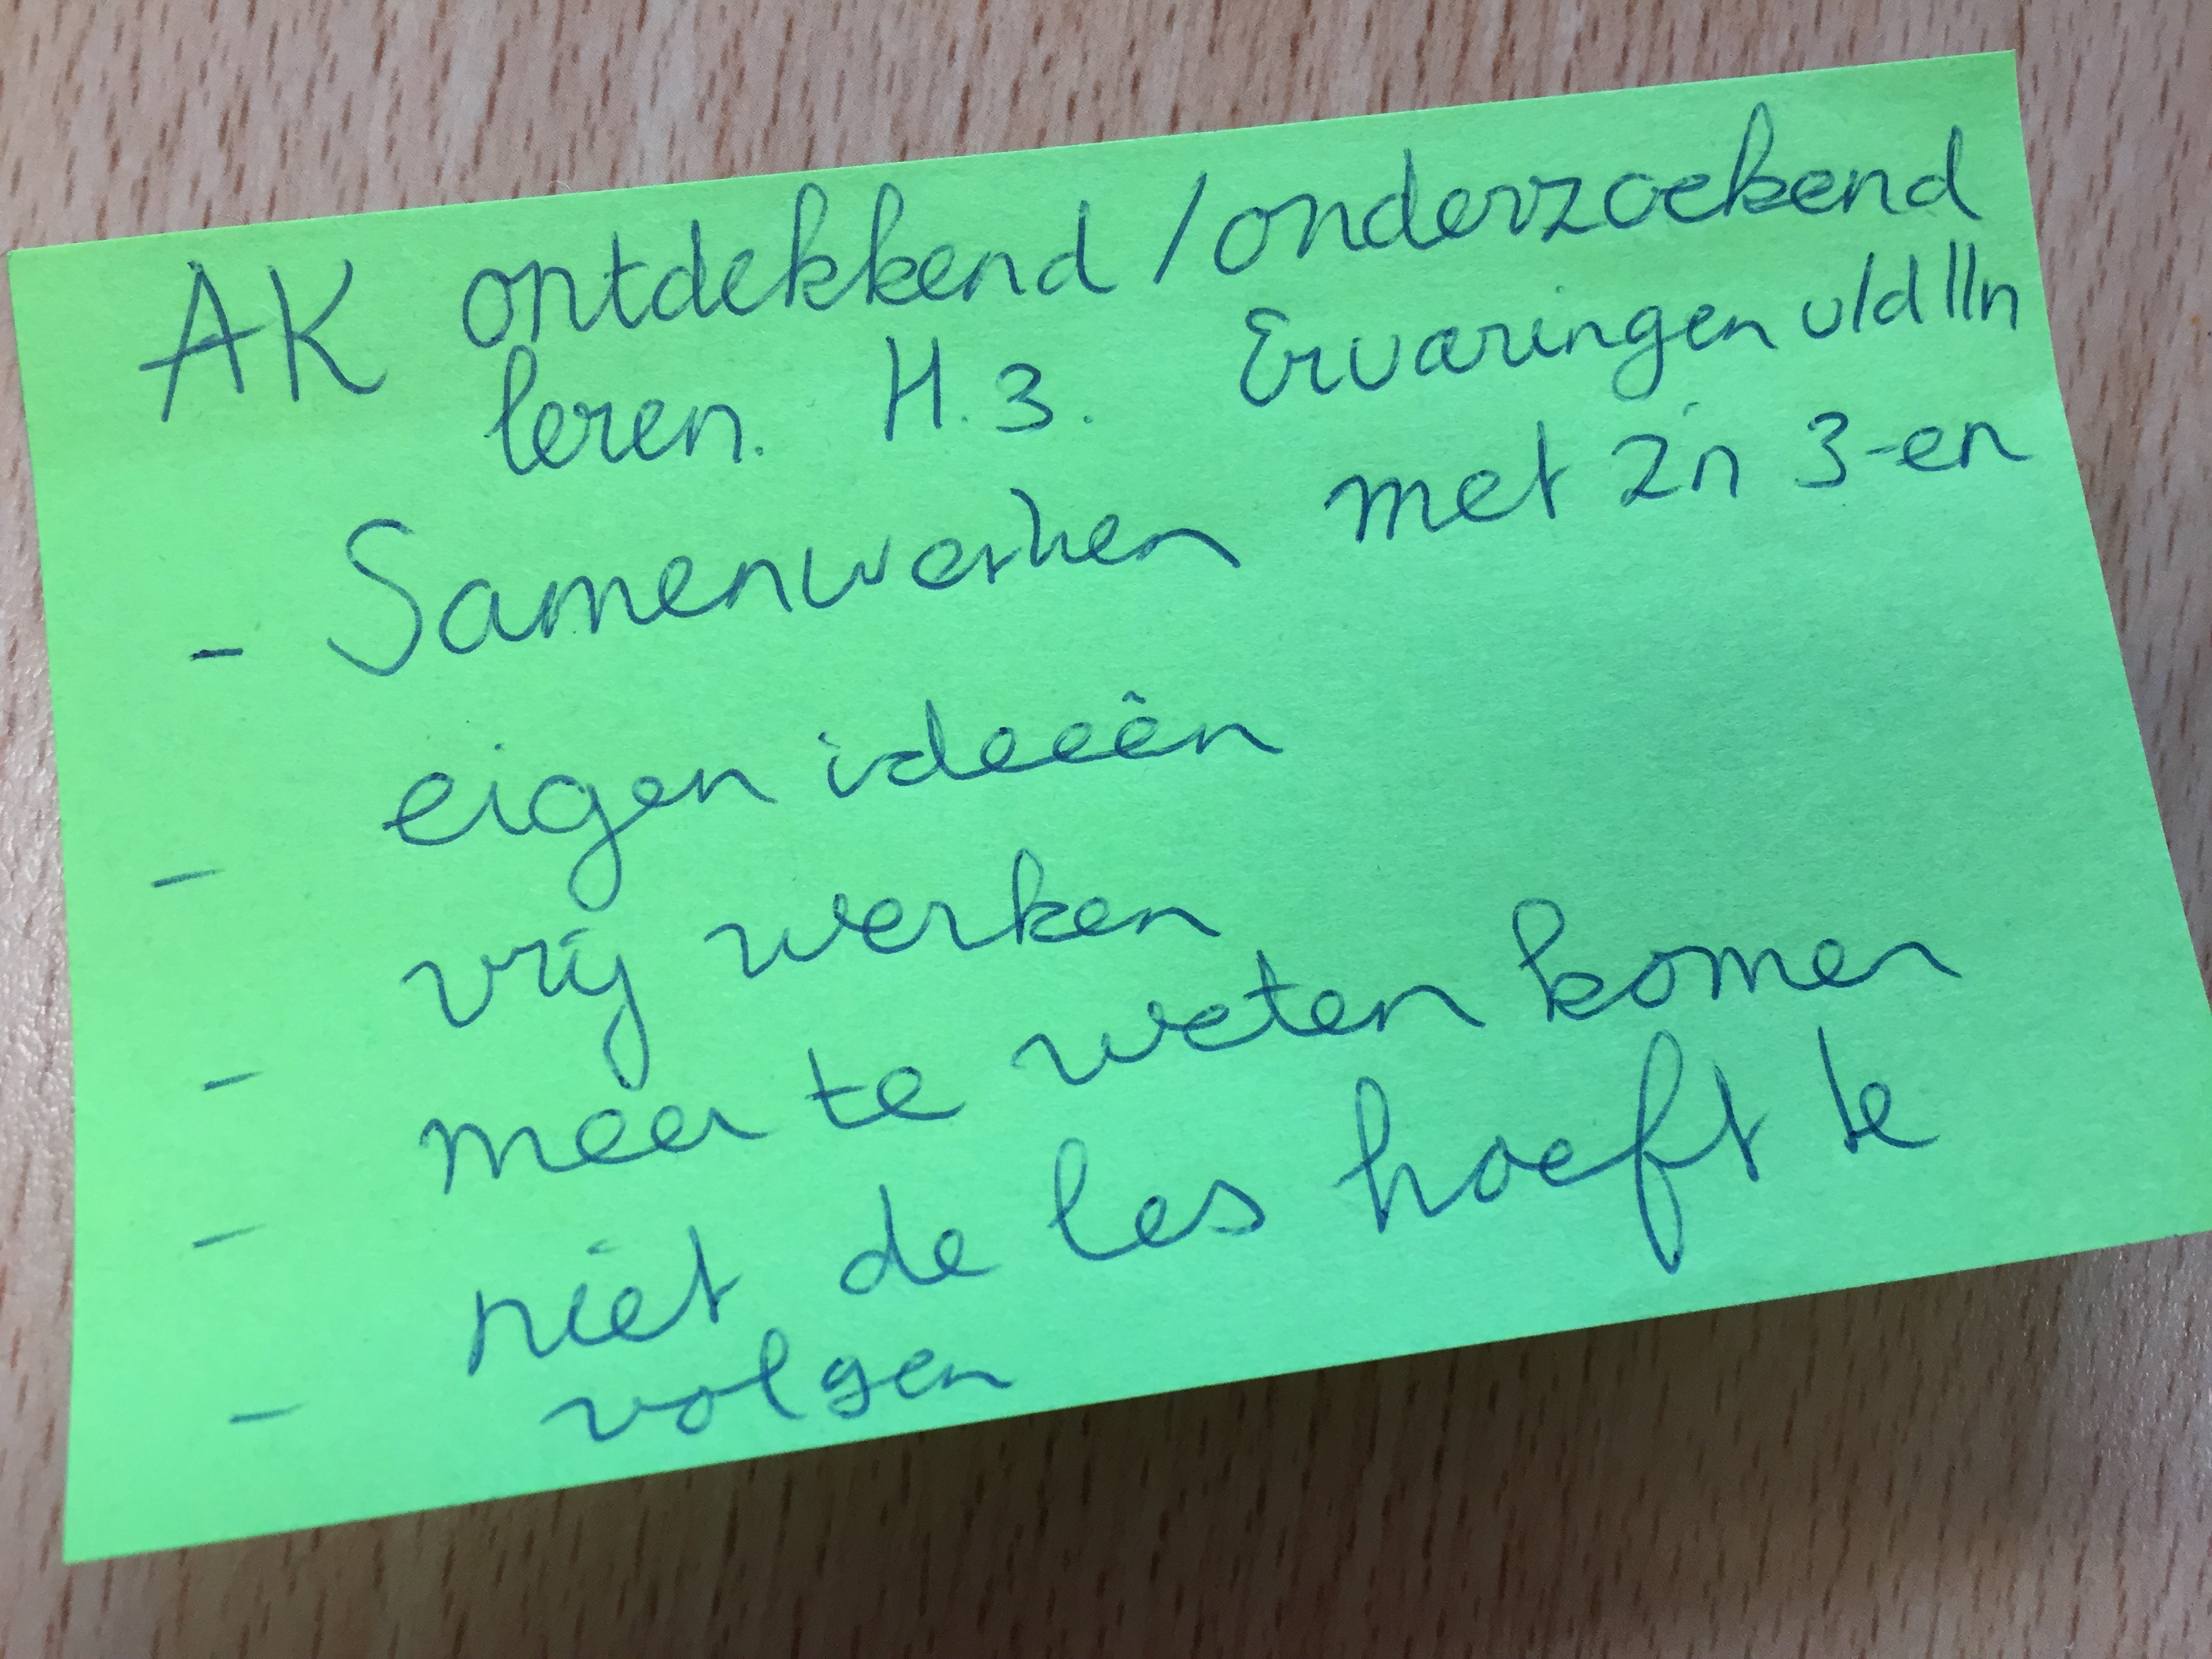 AK ontdekkend / onderzoekend
leren. H. 3. Ervaringen v/d lln
- Samenwerken met z'n 3-en
- eigen ideeën
- vrij werken
- meer te weten komen
- niet de les hoeft te
volgen